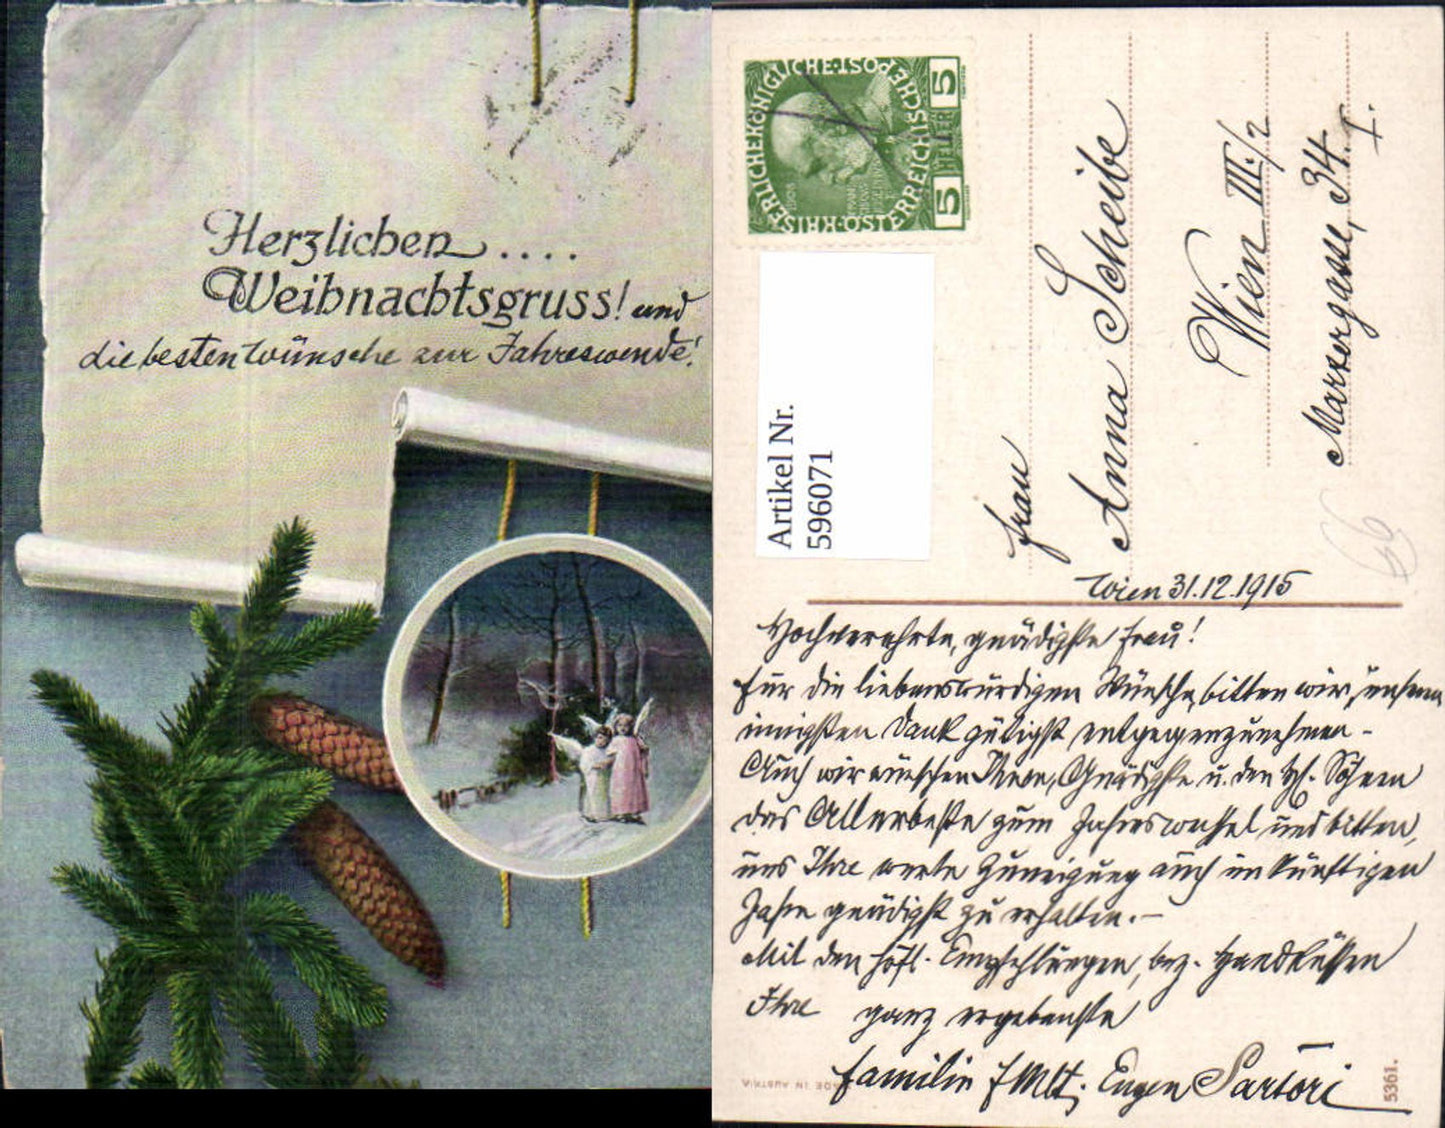 Herzlichen ....
Weihnachtsgruss! und
die besten Wünsche zur Jahreswende!
KAISERLICHEKÖNIGLICHE·ÖSTERREICHISCHE
5 HELLER 5
Artikel Nr.
596071
Frau
Anna Scheibe
Wien III./2
Marxergasse, 34. I.
66
Wien 31.12.1915
Hochverehrte, gnädigste Frau!
Für die liebenswürdigen Wünsche, bitten wir, unseren
innigsten Dank gütigst entgegenzunehmen -
Auch wir wünschen Ihnen, Gnädigste u. den Söhnen
das Allerbeste zum Jahreswechsel und bitten,
uns Ihre werte Zuneigung auch im künftigen
Jahre gnädigst zu erhalten. -
Mit den höfl. Empfehlungen, bez. Handküssen
Ihre ganz ergebenste
Familie FMLt. Eugen Sartori
MADE IN AUSTRIA
5361.